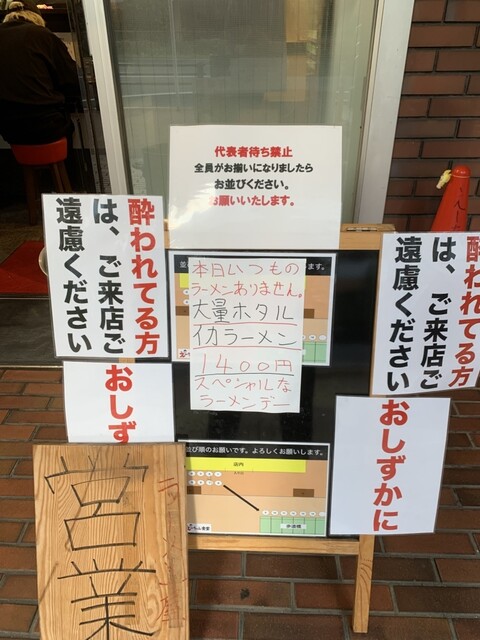 代表者待ち禁止
全員がお揃いになりましたら
お並びください。
お願いいたします。
酔われてる方
は、ご来店ご
遠慮ください
酔われてる方
は、ご来店ご
遠慮ください
本日いつもの
ラーメンありません。
大量ホタル
イカラーメン
1400円
スペシャルな
ラーメンデー
おしず
おしずかに
並び順のお願いです。よろしくお願いします。
店内
歩道橋
営業